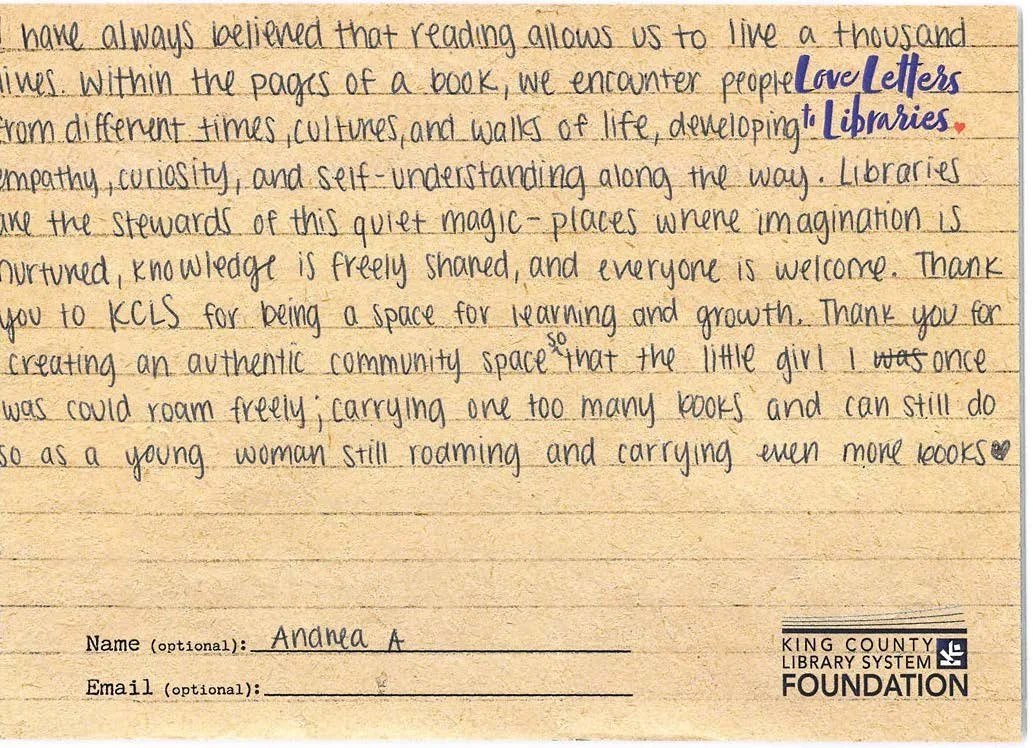 I have always believed that reading allows us to live a thousand
lives. Within the pages of a book, we encounter people
Love Letters
from different times, cultures, and walks of life, developing
to Libraries
empathy, curiosity, and self-understanding along the way. Libraries
are the stewards of this quiet magic - places where imagination is
nurtured, knowledge is freely shared, and everyone is welcome. Thank
you to KCLS for being a space for learning and growth. Thank you for
creating an authentic community space so that the little girl I was once
was could roam freely; carrying one too many books and can still do
so as a young woman still roaming and carrying even more books
Name (optional): Andrea A
Email (optional):
KING COUNTY
LIBRARY SYSTEM
FOUNDATION